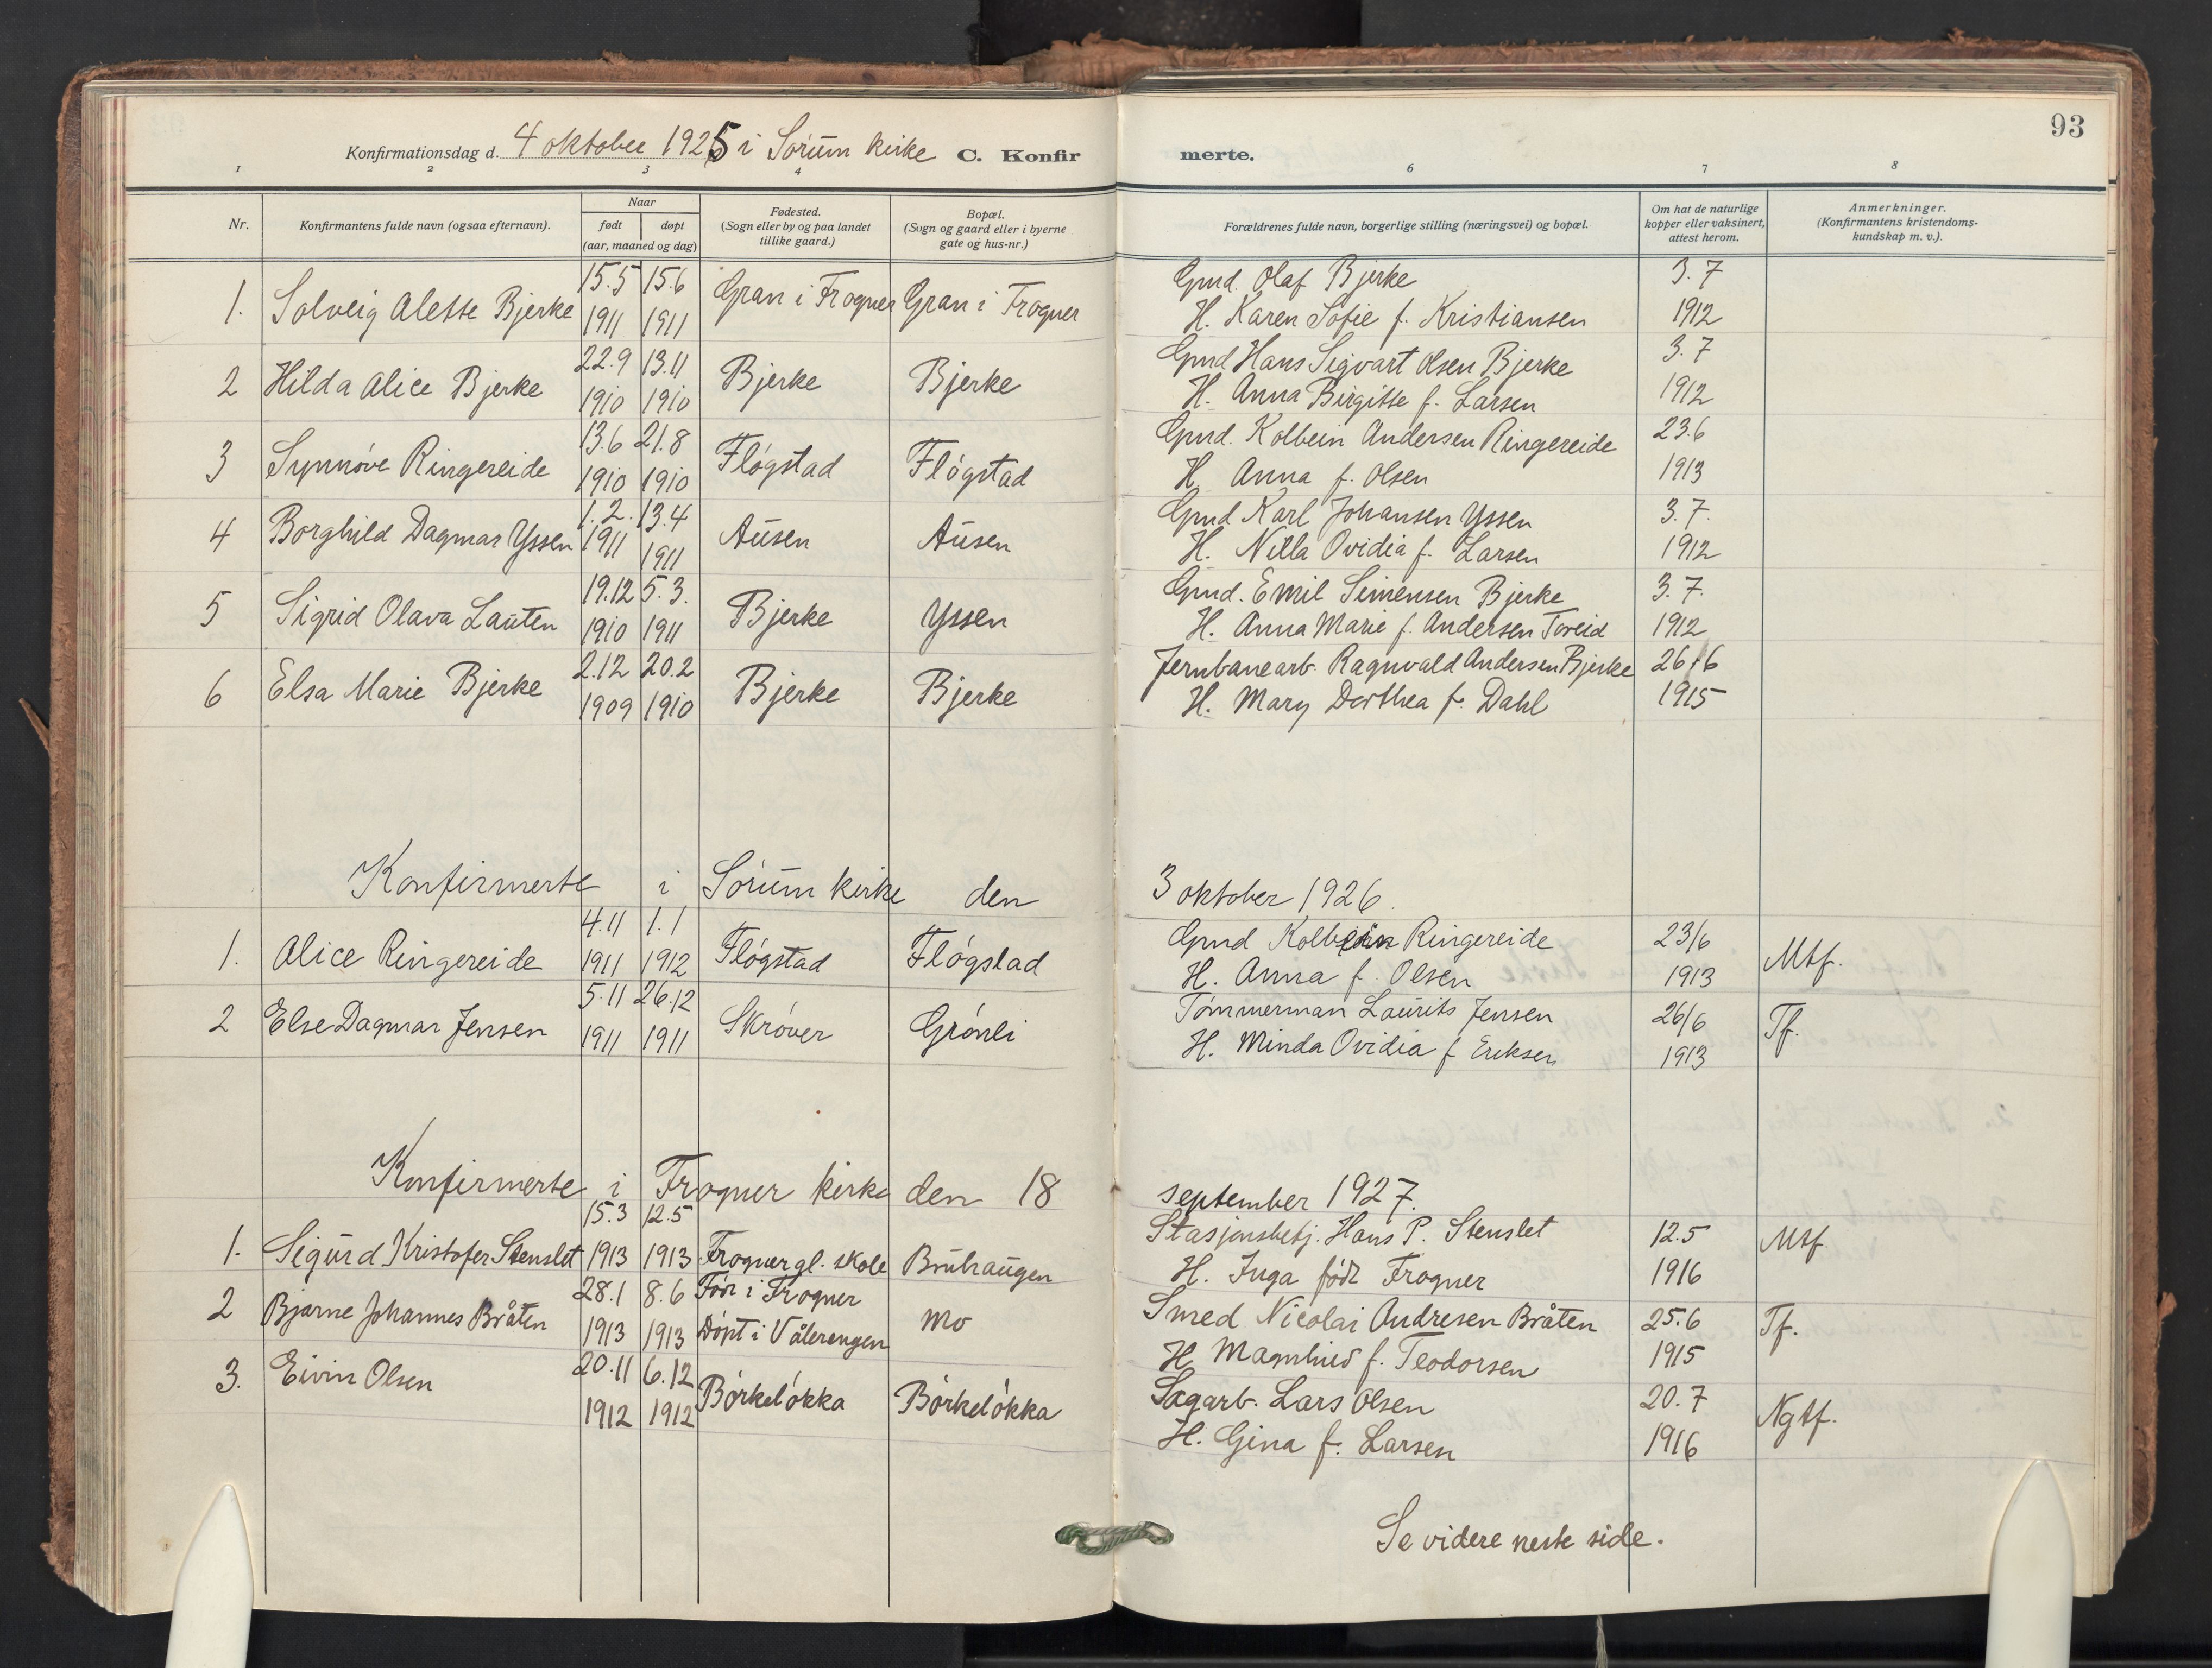 93
Konfirmationsdag d. 4 oktober 1925 i Sørum kirke C. Konfir merte.
1 2 3 4 6 7 8
Nr. Konfirmantens fulde navn (ogsaa efternavn). Naar født døpt (aar, maaned og dag) Fødested. (Sogn eller by og paa landet tillike gaard.) Bopæl. (Sogn og gaard eller i byerne gate og hus-nr.) Forældrenes fulde navn, borgerlige stilling (næringsvei) og bopæl. Om hat de naturlige kopper eller vaksinert, attest herom. Anmerkninger. (Konfirmantens kristendoms-kundskap m. v.).
15.5 15.6 Gmd. Olaf Bjerke 3.7
1. Solveig Alette Bjerke 1911 1911 Gran i Frogner Gran i Frogner H. Karen Sofie f. Kristiansen 1912
22.9 13.11 Gmd Hans Sigvart Olsen Bjerke 3.7
2 Hilda Alice Bjerke 1910 1910 Bjerke Bjerke H. Anna Birgitte f. Larsen 1912
13.6 21.8 Gmd. Kolbein Andersen Ringereide 23.6
3 Synnøve Ringereide 1910 1910 Fløgstad Fløgstad H. Anna f. Olsen 1913
1.2. 13.4 Gmd Karl Johansen Yssen 3.7.
4 Borghild Dagmar Yssen 1911 1911 Ausen Ausen H. Nilla Ovidia f. Larsen 1912
19.12 5.3. Gmd. Emil Simensen Bjerke 3.7.
5 Sigrid Olava Lauten 1910 1911 Bjerke Yssen H. Anna Marie f. Andersen Toreid 1912
2.12 20.2 Jernbanearb. Ragnvald Andersen Bjerke 26/6
6 Elsa Marie Bjerke 1909 1910 Bjerke Bjerke H. Mary Dorthea f. Dahl 1915
Konfirmerte i Sørum kirke den 3 oktober 1926.
4.11 1.1 Gmd Kolbein Ringereide 23/6
1. Alice Ringereide 1911 1912 Fløgstad Fløgstad H. Anna f. Olsen 1913 Mtf.
5.11 26.12 Tømmerman Laurits Jensen 26/6
2 Else Dagmar Jensen 1911 1911 Skrøver Grønli H. Minda Ovidia f Eriksen 1913 Tf.
Konfirmerte i Frogner kirke den 18 september 1927.
15.3 12.5 Stasjonsbetj. Hans P. Stenslet 12.5
1. Sigurd Kristofer Stenslet 1913 1913 Frogner gl. skole Bruhaugen H. Inga født Frogner 1916 Mtf
28.1 8.6 Fød i Frogner Smed Nicolai Andresen Bråten 25.6
2 Bjarne Johannes Bråten 1913 1913 Døpt i Vålerengen Mo H. Magnhild f. Teodorsen 1915 Tf.
20.11 6.12 Sagarb. Lars Olsen 20.7
3. Eivin Olsen 1912 1912 Børkeløkka Børkeløkka H. Gina f. Larsen 1916 Ngtf.
Se videre neste side.